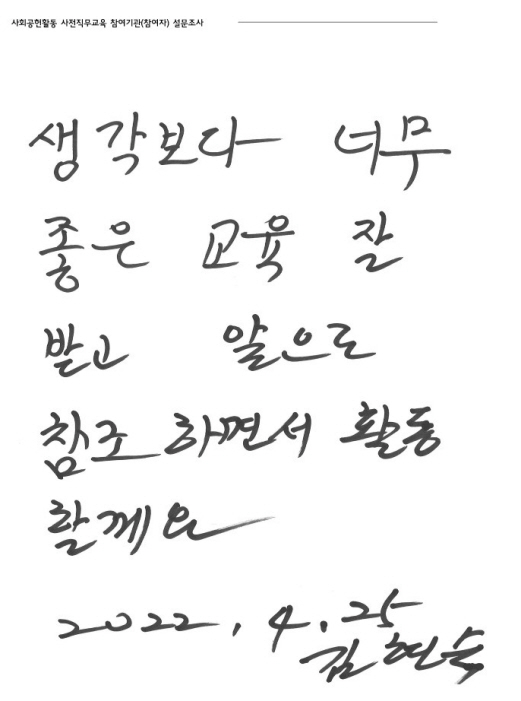 사회공헌활동 사전직무교육 참여기관(참여자) 설문조사
생각보다 너무
좋은 교육 잘
받고 앞으로
참조 하면서 활동
할께요
2022. 4. 25
김현숙